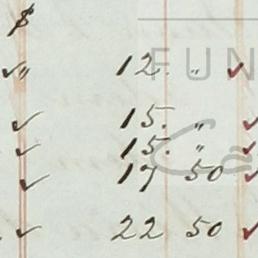 $
✓ " 12. " ✓
✓ 15. " ✓
✓ 15. " ✓
✓ 17 50 ✓
✓ 22 50 ✓
FUN
Ca